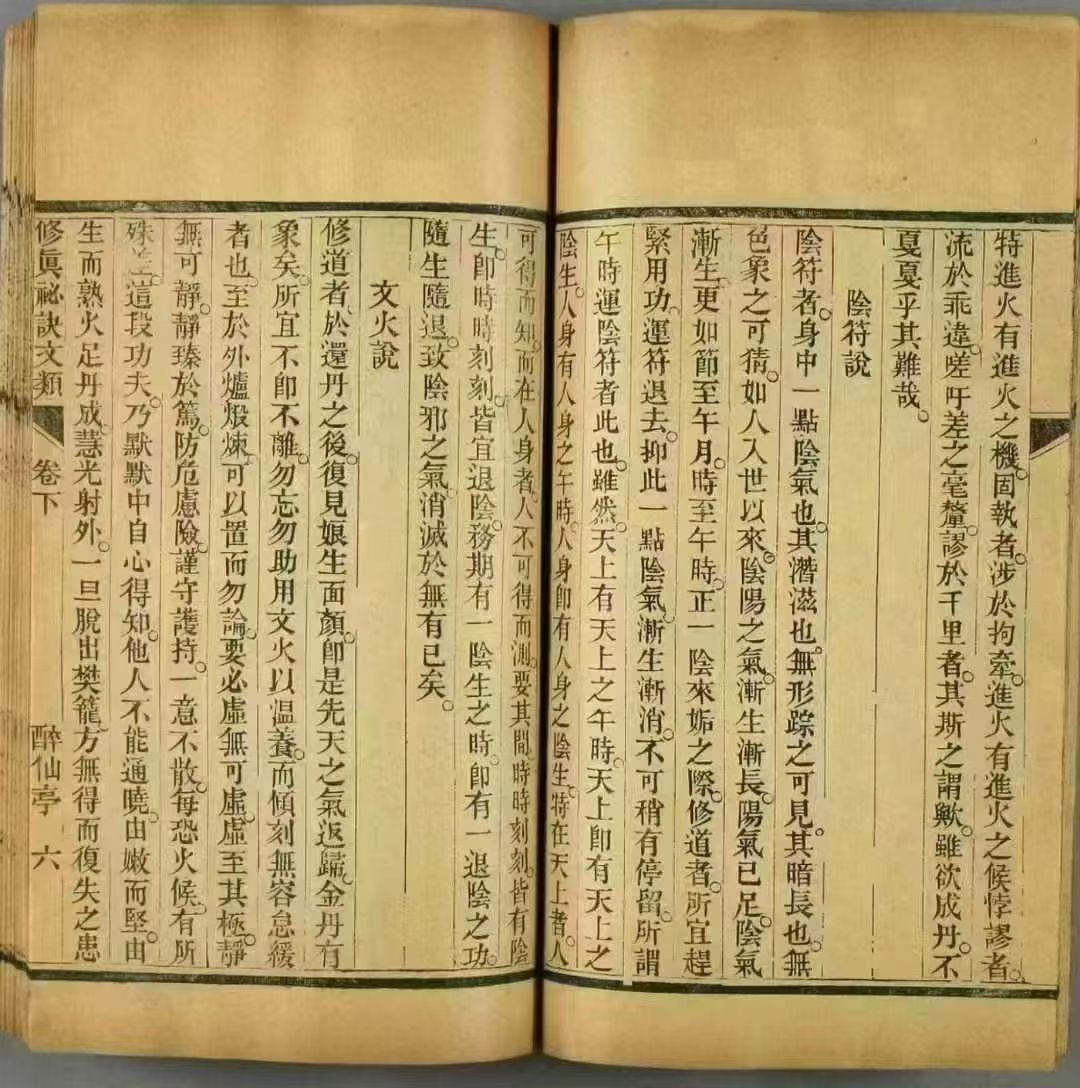 特進火有進火之機。固執者。涉於拘牽。進火有進火之候。悖謬者。
流於乖違。嗟吁差之毫釐。謬於千里者。其斯之謂歟。雖欲成丹。不
戛戛乎其難哉。
陰符說
陰符者。身中一點陰氣也。其潛滋也。無形踪之可見。其暗長也。無
色象之可猜。如人入世以來。陰陽之氣。漸生漸長。陽氣已足。陰氣
漸生。更如節至午月。時至午時。正一陰來姤之際。修道者。所宜趕
緊用功。運符退去。抑此一點陰氣。漸生漸消。不可稍有停留。所謂
午時運陰符者此也。雖然。天上有天上之午時。天上卽有天上之
陰生。人身有人身之午時。人身卽有人身之陰生。特在天上者。人
可得而知。而在人身者。人不可得而測。要其間。時時刻刻。皆有陰
生。卽時時刻刻。皆宜退陰。務期有一陰生之時。卽有一退陰之功。
隨生隨退。致陰邪之氣。消滅於無有已矣。
文火說
修道者。於還丹之後。復見娘生面顏。卽是先天之氣返歸。金丹有
象矣。所宜不卽不離。勿忘勿助。用文火以溫養。而傾刻無容怠緩
者也。至於外爐煅煉。可以置而勿論。要必虛無可虛。虛至其極。靜
無可靜。靜臻於篤。防危慮險。謹守護持。一意不散。每恐火候。有所
殊。這段功夫。乃默默中自心得知。他人不能通曉。由嫩而堅。由
生而熟。火足丹成。慧光射外。一旦脫出樊籠。方無得而復失之患
修眞祕訣文類 卷下 醉仙亭 六